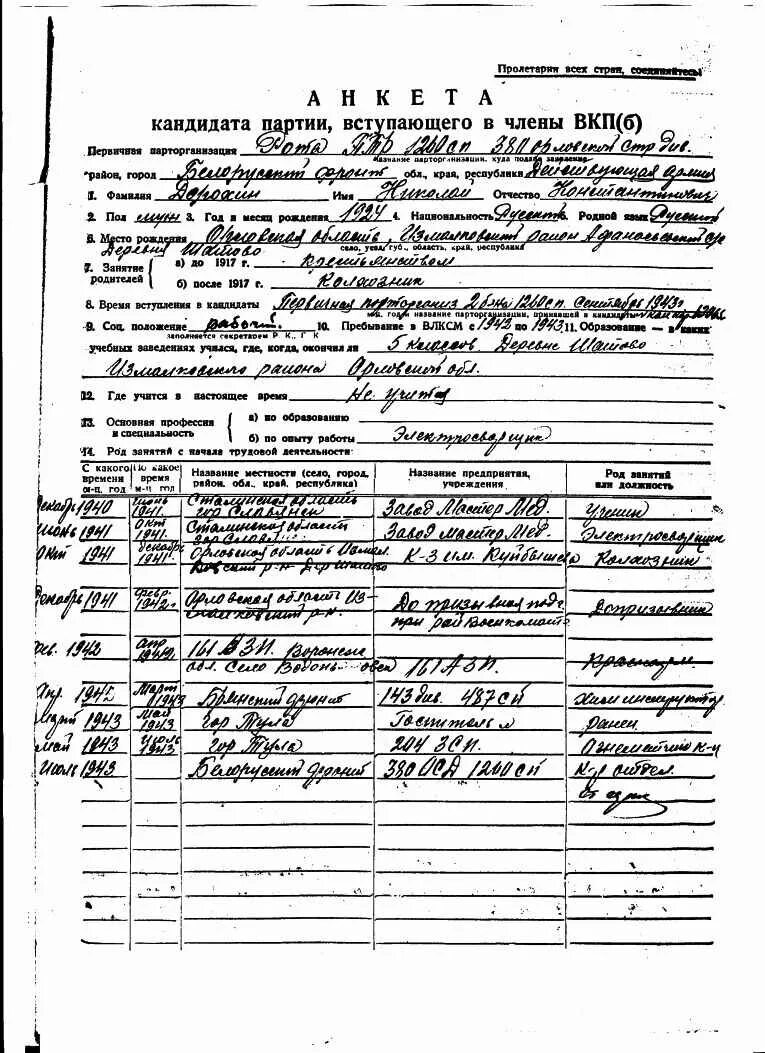 Пролетарии всех стран, соединяйтесь!
АНКЕТА
кандидата партии, вступающего в члены ВКП(б)
Первичная парторганизация Рота ПТР 1260 сп 380 орловской Стр див.
название парторганизации, куда подано заявление
район, город Белорусский фронт обл., края, республики Действующая армия
1. Фамилия Дорохин Имя Николай Отчество Константинович
2. Пол муж 3. Год и месяц рождения 1924 4. Национальность Русский 5. Родной язык Русский
6. Место рождения Орловская область, Измалковский район
Деревня Шатово село, уезд/губ., область, край, республика
7. Занятие родителей а) до 1917 г. крестьянством
б) после 1917 г. Колхозник
8. Время вступления в кандидаты Первичная 1260 сп. Сентябрь 1943 г
м-ц, год и название парторганизации, принявшей в кандидаты
9. Соц. положение рабочий 10. Пребывание в ВЛКСМ с 1942 по 1943 11. Образование — в каких
заполняется секретарем Р. К., Г К
учебных заведениях учился, где, когда, окончил ли 5 классов Деревне Шатово
Измалковского района Орловской обл.
12. Где учится в настоящее время Не учится
13. Основная профессия и специальность а) по образованию
б) по опыту работы Электросварщик
14. Род занятий с начала трудовой деятельности:
С какого времени м-ц, год По какое время м-ц год Название местности (село, город, район, обл., край, республика) Название предприятия, учреждения Род занятий или должность
Декабрь 1940 июнь 1941. Сталинская область гор Славянск Завод Мастер Мед. Ученик
Июнь 1941 Окт 1941. Сталинская область Завод мастер Мед. Электросварщик
Окт 1941 декабрь 1941. Орловская область К-з им. Куйбышева Колхозник
Декабрь 1941 февр. 1942 г. Орловская область Из-малковский р-н. Допризывная подг. при рай Военкомате Допризывник
1942 апр 161 АЗП. Воронеж обл. Село 161 АЗП.
Апр. 1942 Март 1943 Брянский фронт 143 див. 487 сп Хим инструктор
Март 1943 май 1943 гор Тула Госпиталь Ранен
май 1943 июль 1943 гор Тула 204 ЗСП.
Июль 1943 Белорусский фронт 380 ОСД 1260 СП К-р отдел.